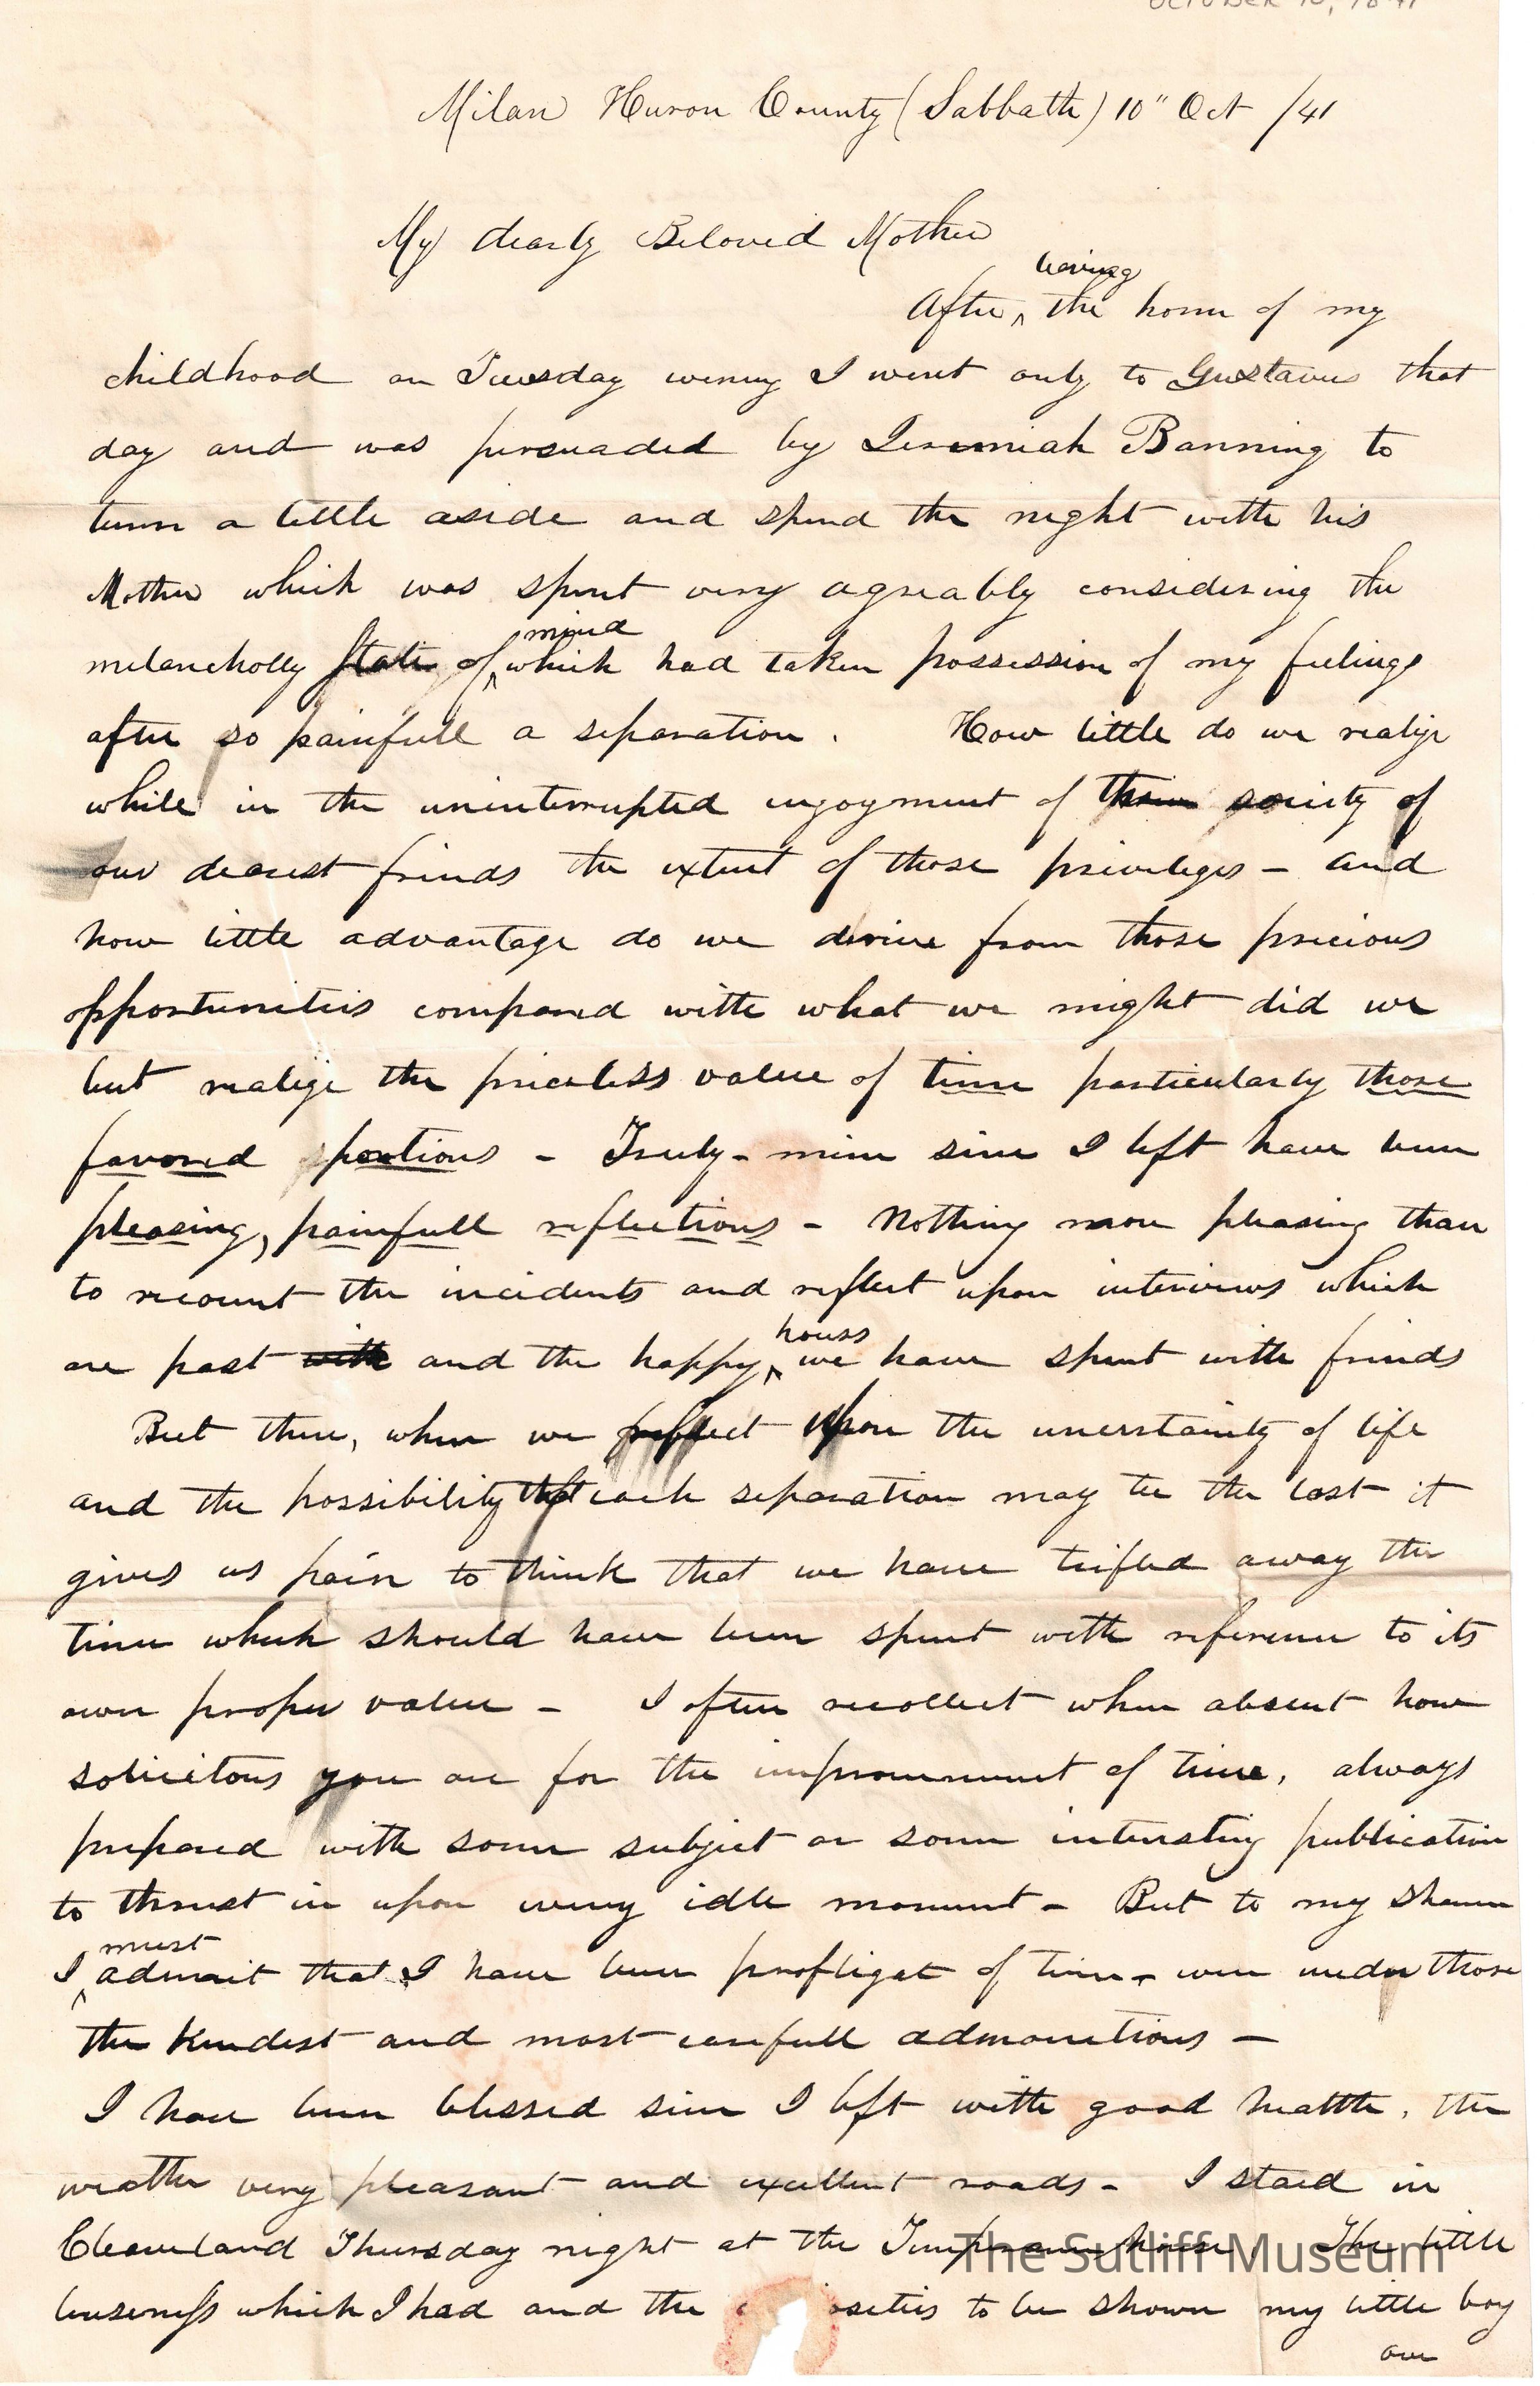 October 10, 1841
Milan Huron County (Sabbath) 10" Oct /41
My dearly Beloved Mother
leaving
After ‸ the home of my
childhood on Tuesday evening I went only to Gustavus that
day and was persuaded by Jeremiah Banning to
turn a little aside and spend the night with his
Mother which was spent very agreably considering the
mind
melancholly state of ‸ which had taken possession of my feelings
after so painfull a separation. How little do we realize
while in the uninterrupted enjoyment of society of
our dearest friends the extent of those privileges – and
how little advantage do we derive from those precious
opportunities compared with what we might did we
but realize the priceless value of time particularly those
favored portions – Truly – mine since I left have been
pleasing, painfull reflections – Nothing more pleasing than
to recount the incidents and reflect upon interviews which
hours
are past with and the happy ‸ we have spent with friends
But then, when we reflect upon the uncertainty of life
and the possibility that each separation may be the last it
gives us pain to think that we have trifled away the
time which should have been spent with reference to its
own proper value – I often recollect when absent how
solicitous you are for the improvement of time, always
prepared with some subject or some interesting publication
to thrust in upon every idle moment – But to my shame
must
I ‸ admit that I have been profligat of time – even under those
the kindest and most carefull admonitions –
I have been blessed since I left with good health, the
weather very pleasant and excellent roads – I staid in
Cleaveland Thursday night at the Temperance house. The little
buseness which I had and the osities to be shown my little boy
our
The Sutliff Museum